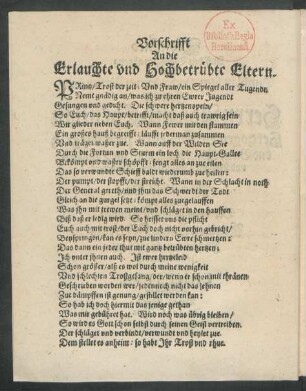 Ex
Bibliotheca Regia
Berolinensi
Vorschrifft
An die
Erlauchte vnd Hochbetrübte Eltern.
PRintz/Trost der zeit: Vnd Fraw/ein Spiegel aller Tugendt/
Nemt gnädig an/was ich zu ehren Ewrer Jugendt
Gesungen vnd geducht. Die schwere hertzens pein/
So Euch/das Haupt/betrifft/macht daß auch trawrig sein
Wir glieder neben Euch. Wann Fewer mit den flammen
Ein grosses hauß ergreifft: läufft jederman zusammen
Vnd träget wasser zu. Wann auff der Wilden See
Durch die Fortun vnd Sturm ein loch die Haupt-Gallee
Bekömpt vnd wasser schöpfft: fengt alles an zu eilen
Das so verwundte Schieff bald wiederumb zu heilen:
Der pumpt/der stopfft/der streicht. Wann in der Schlacht in noth
Der General gereth/vnd jhm das Schwerdt der Todt
Gleich an die gurgel setzt: kömpt alles zugelauffen
Was jhn mit trewen meint/vnd schläget in den hauffen
Biß daß er ledig wird. So heisset vns die pflicht
Euch auch mit trost/der Euch doch nicht vorhin gebricht/
Beyspringen/kan es seyn/zu lindern Ewre schmertzen:
Das dann ein jeder thut mit gantz betrübten hertzen;
Ich vnter jhnen auch. Ist ewer hertzeleid
Schon grösser/alß es wol durch meine wenigkeit
Vnd schlechten Trostgesang/der/wenn er schon mit thränen
Geschrieben worden wer/jedennoch nicht das sehnen
Zu dämpffen ist genung/gestillet werden kan:
So hab ich doch hiermit das jenige gethan
Was mir gebühret hat. Wird noch was übrig bleiben/
So wird es Gott schon selbst durch seinen Geist vertreiben.
Der schläget vnd verbindt/verwundt vnd heylet zu:
Dem stellet es anheim: so habt Jhr Trost vnd rhue.